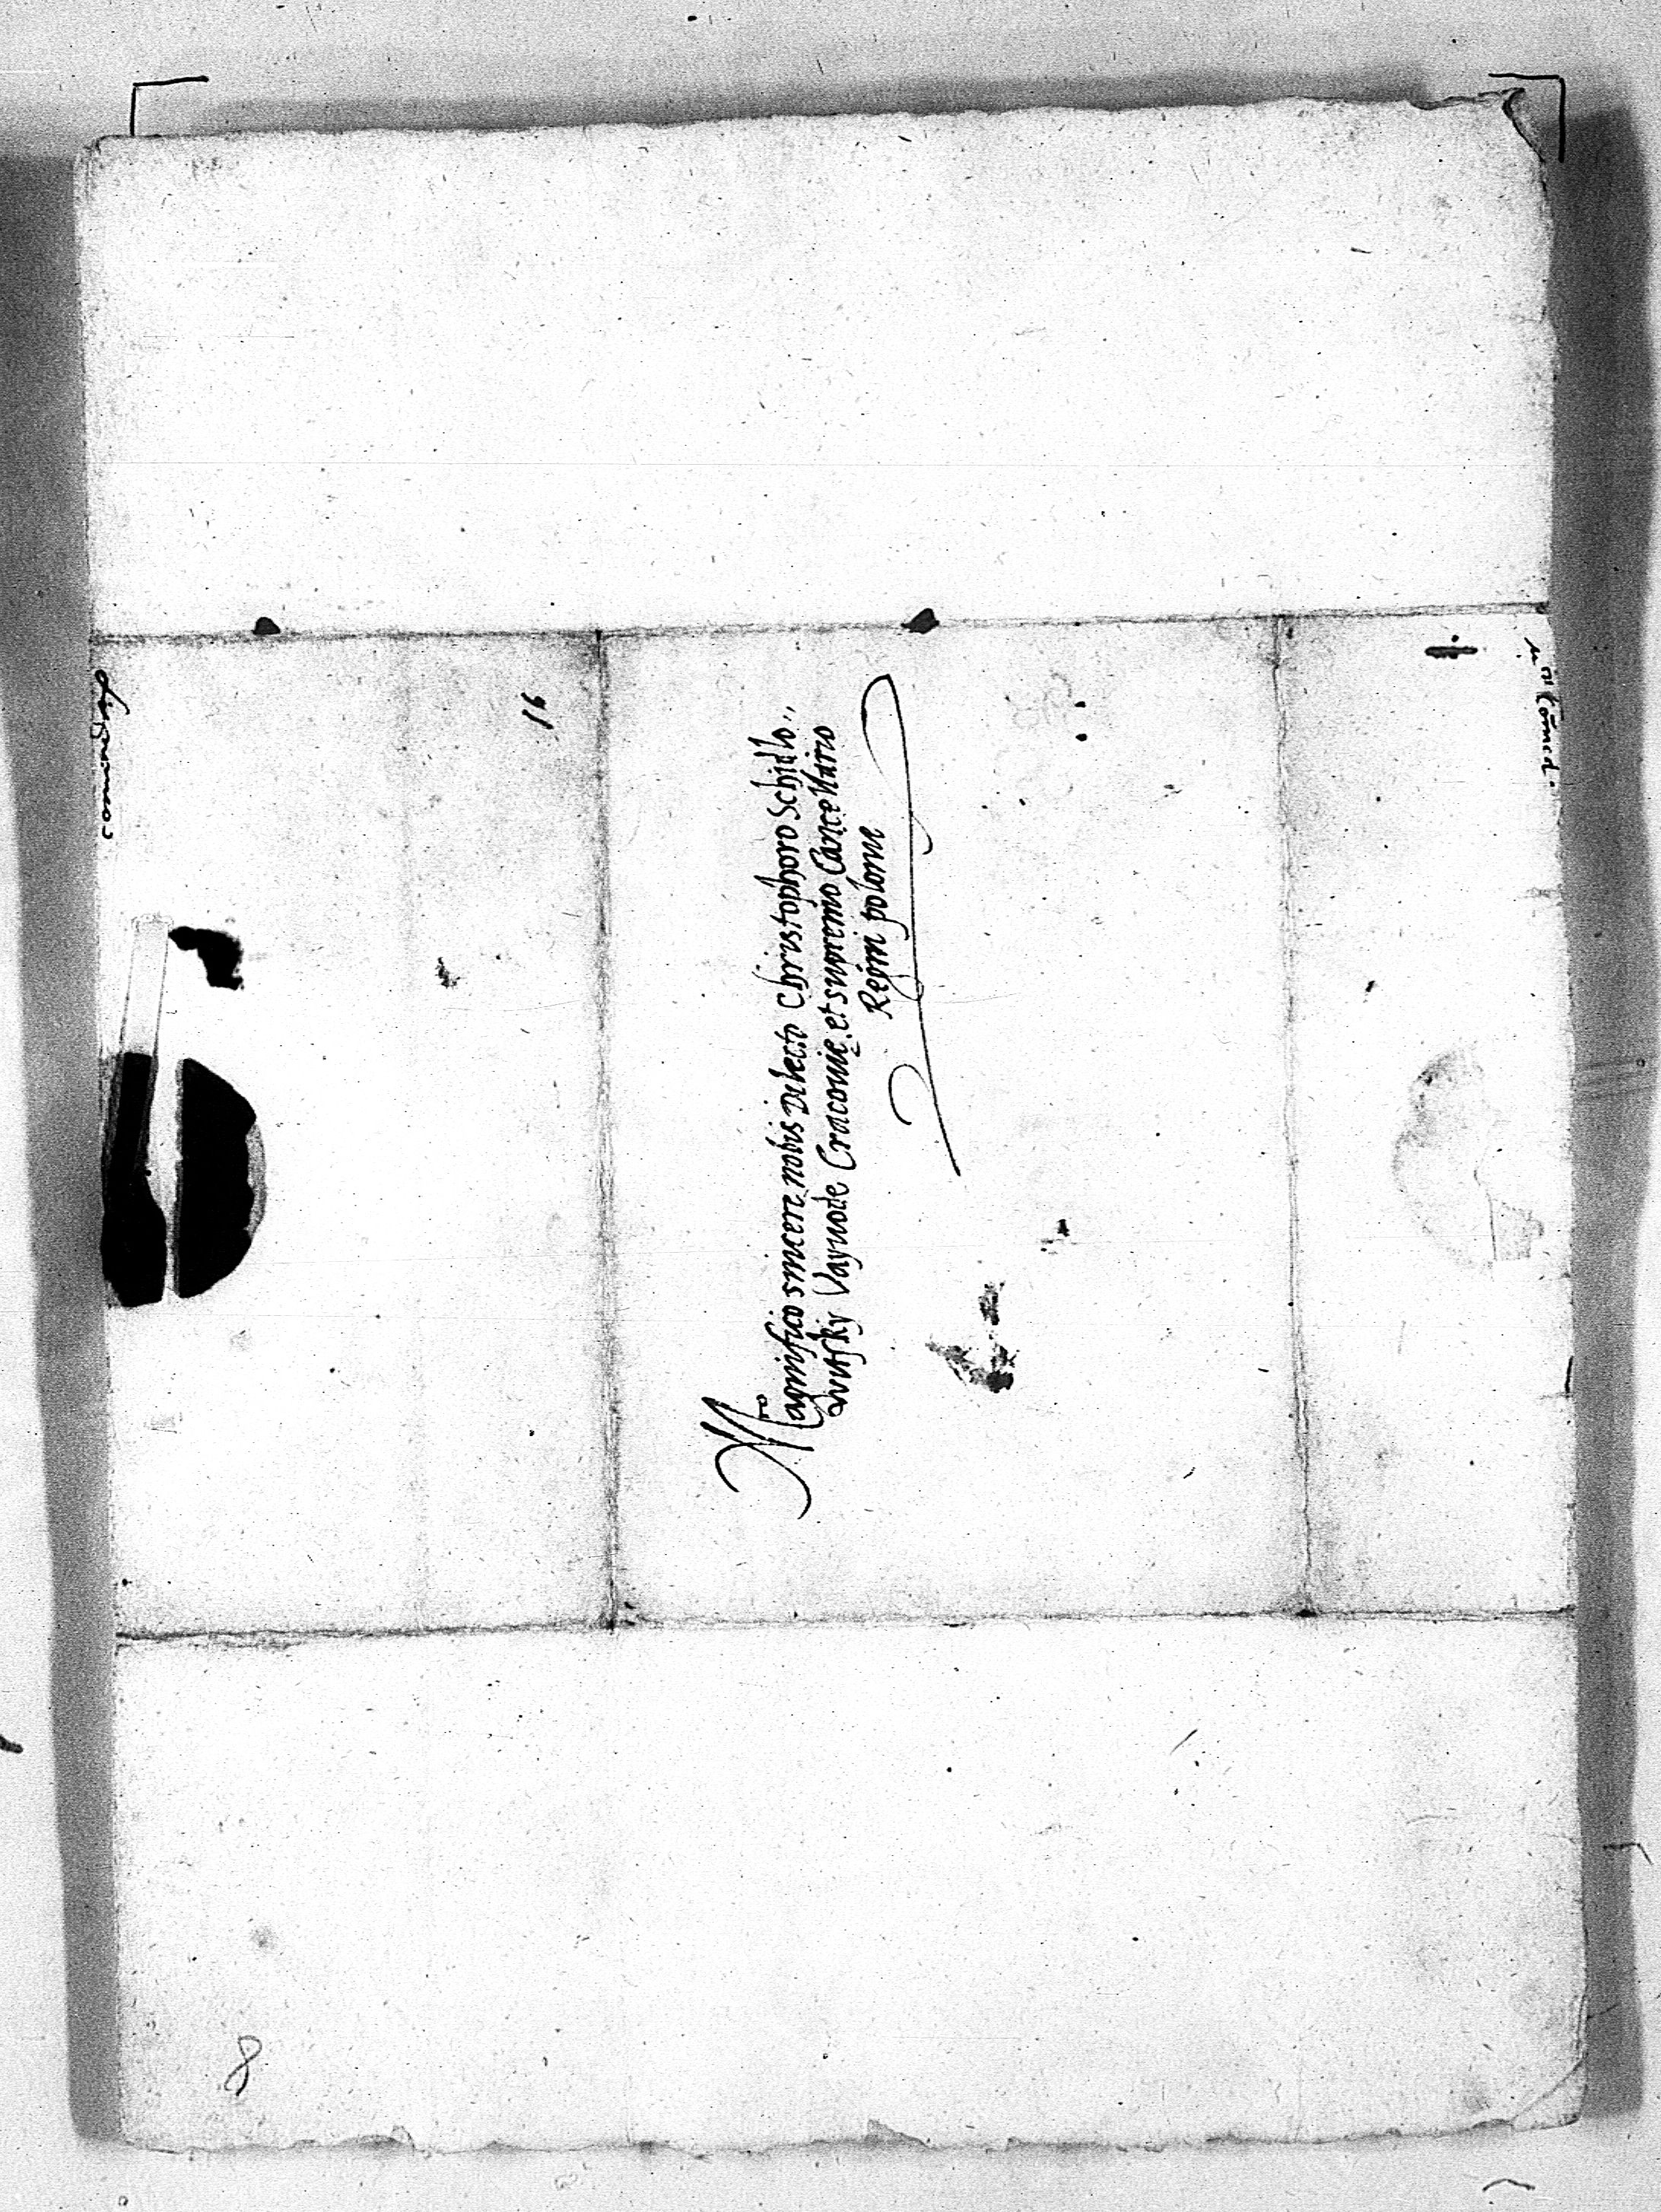 Magnifico sincere nobis Dilecto Christophoro Schidlo,,
vitsky Vayuode Cracouie et supremo Cancellario
Regni polonie
16
8